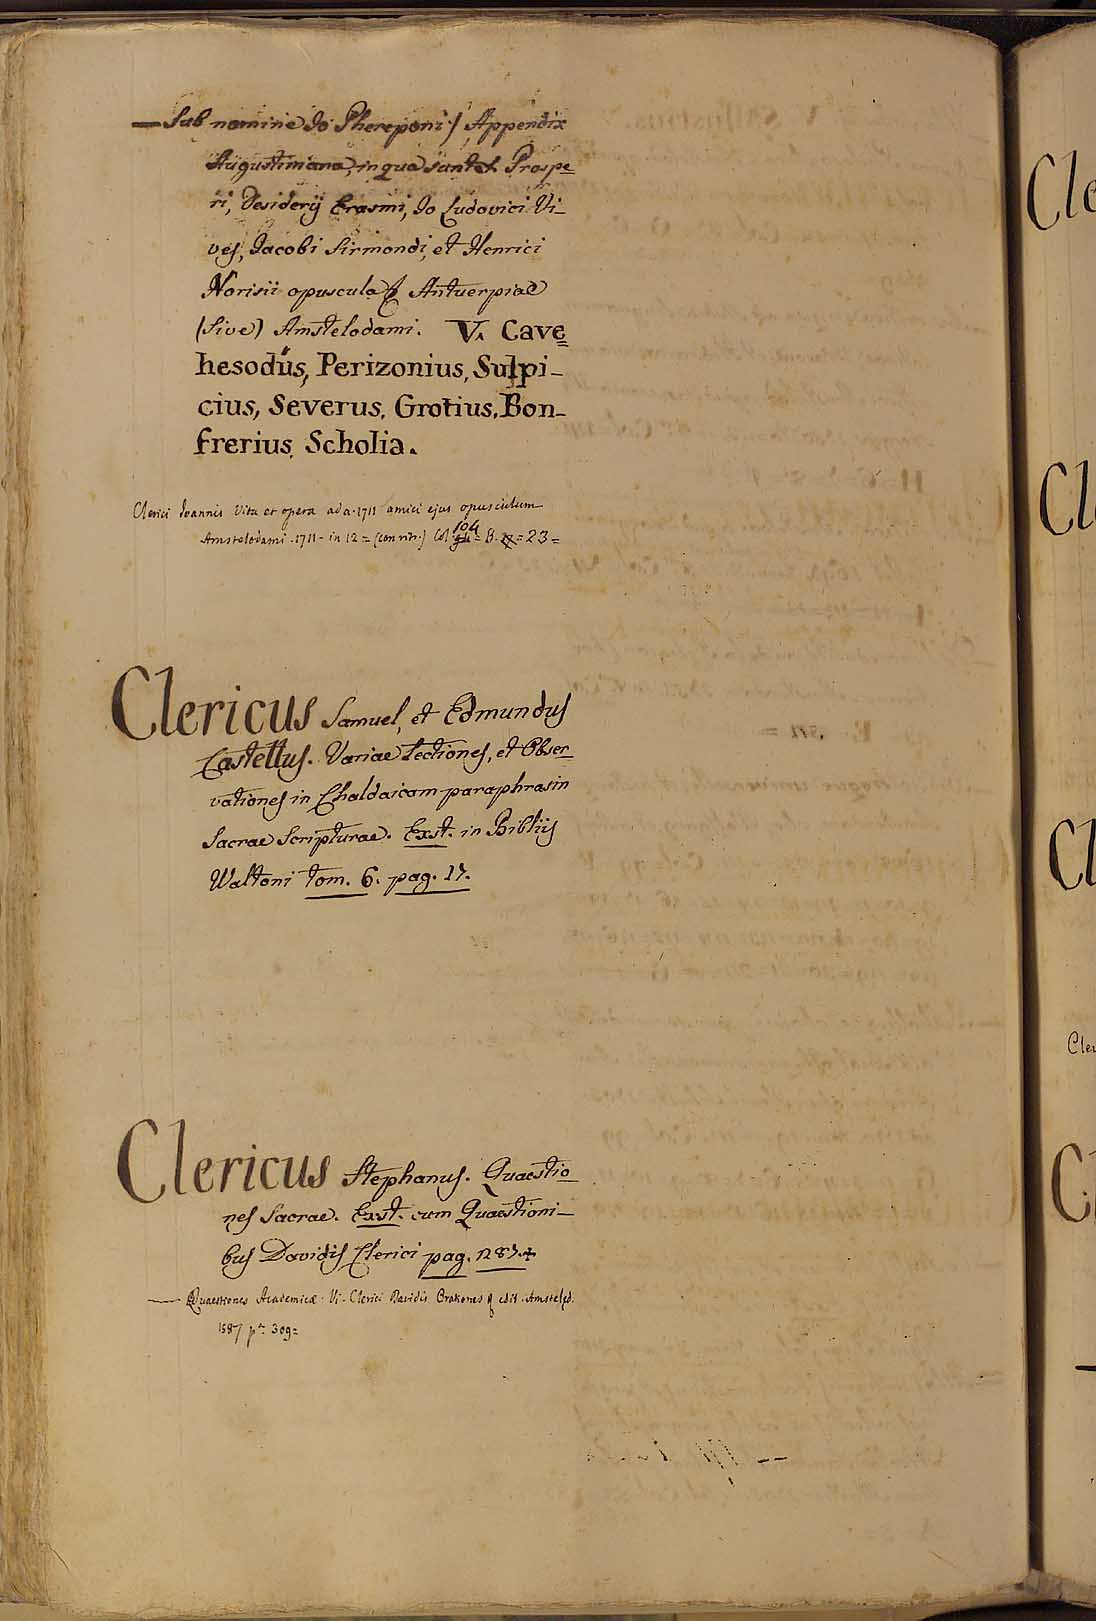 — Sub nomine Io Phereponi / Appendix
Augustiniana, in qua sunt S. Prospe=
ri, Desiderij Erasmi, Io Ludovici Vi=
ves, Iacobi Sirmondi, et Henrici
Norisii opuscula Antuerpiae
(sive) Amstelodami. V. Cave=
hesodus, Perizonius, Sulpi-
cius, Severus, Grotius, Bon-
frerius, Scholia.
Clerici Ioannis Vita et opera ad a. 1711 amici ejus opusculum
Amstelodami . 1711 - in 12 = (con ritr.) Col 104 = B. = 23 =
Clericus Samuel, et Edmundus
Castellus. Variae Lectiones, et Obser
vationes in Chaldaicam paraphrasin
Sacrae Scripturae. Exst. in Biblijs
Waltoni tom. 6. pag. 17.
Clericus Stephanus. Quaestio
nes Sacrae. Exst. cum Quaestioni-
bus Davidis Clerici pag. 287.
— Quaestiones Academicæ. Vi. Clerici Davidis Orationes edit. Amstelod.
1687 pag 309 =
Cle
Cl
Cl
Cler
Cl